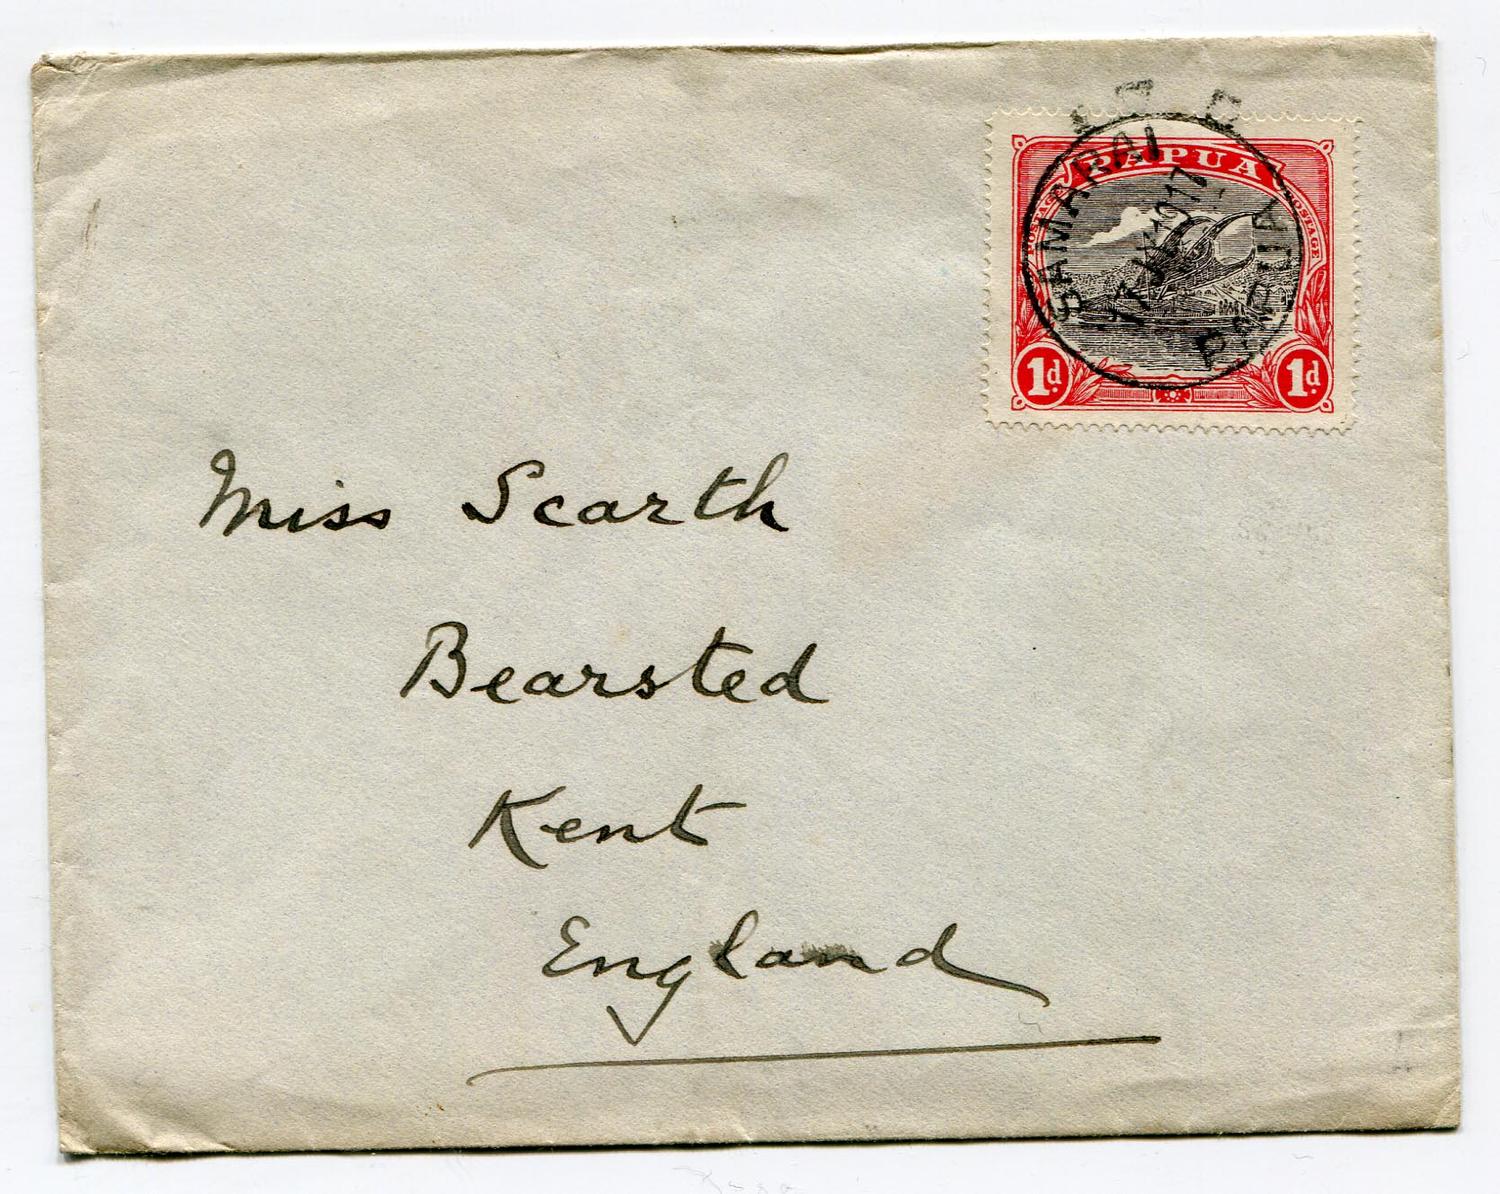 PAPUA
POSTAGE
POSTAGE
1d.
1d.
SAMARAI
1917
PAPUA
Miss Scarth
Bearsted
Kent
England